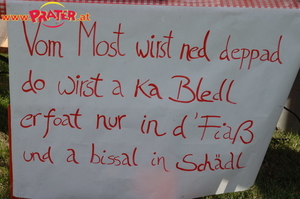 PRATER.at
Vom Most wirst ned deppad
do wirst a ka Bledl
erfoat nur in d'Fiaß
und a bissal in Schädl